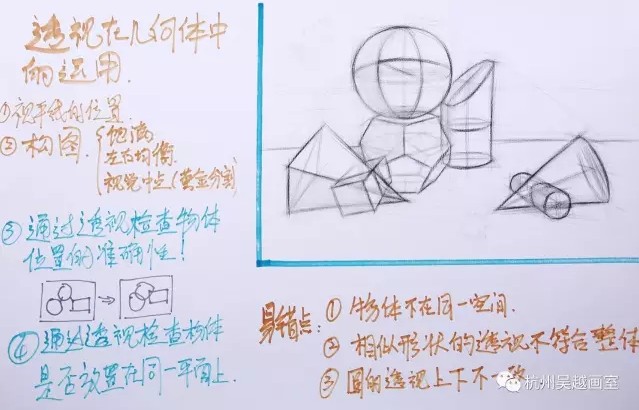 透视在几何体中
的运用.
①视平线的位置.
②构图.
饱满
左右均衡.
视觉中点(黄金分割)
③通过透视检查物体
位置的准确性!
④通过透视检查物体
是否放置在同一平面上.
易错点:
①物体不在同一空间.
②相似形状的透视不符合整体
③圆的透视上下不一致
杭州吴越画室